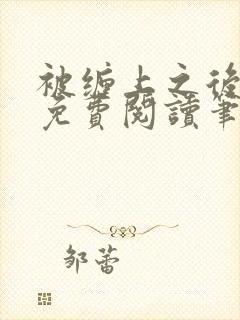 被缠上之後
免費閱讀筆
邹蕾